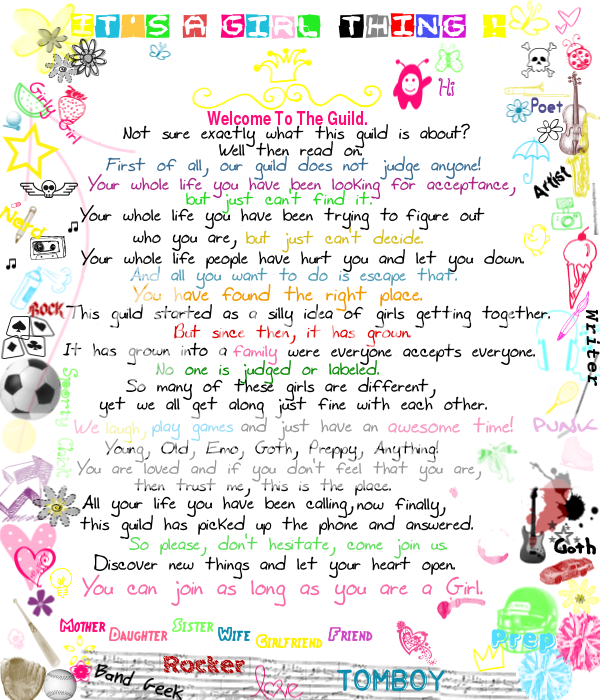 IT'S A GIRL THING !
Hi
Girly Girl
Poet
Welcome To The Guild.
Not sure exactly what this guild is about?
Well then read on.
First of all, our guild does not judge anyone!
Artist
Your whole life you have been looking for acceptance,
but just can't find it.
Nerd
Your whole life you have been trying to figure out
who you are, but just can't decide.
Your whole life people have hurt you and let you down.
And all you want to do is escape that.
You have found the right place.
ROCK
This guild started as a silly idea of girls getting together.
Writer
But since then, it has grown.
It has grown into a family were everyone accepts everyone.
No one is judged or labeled.
So many of these girls are different,
yet we all get along just fine with each other.
Sporty Chick
We laugh, play games and just have an awesome time!
PUNK
Young, Old, Emo, Goth, Preppy, Anything!
You are loved and if you don't feel that you are,
then trust me, this is the place.
All your life you have been calling, now finally,
this guild has picked up the phone and answered.
So please, don't hesitate, come join us.
Goth
Discover new things and let your heart open.
You can join as long as you are a Girl.
MOTHER DAUGHTER SISTER WIFE GIRLFRIEND FRIEND
Prep
Rocker
Band Geek
love
TOMBOY